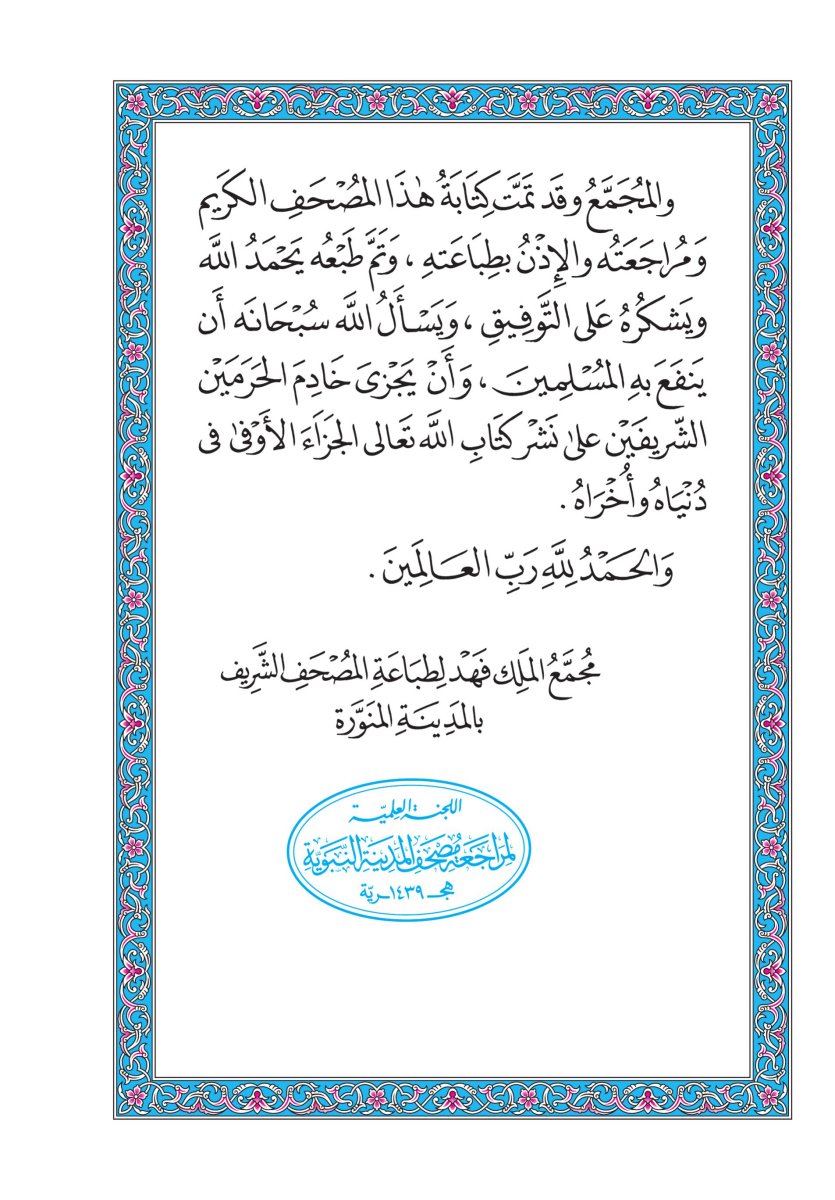 والمُجَمَّعُ وقَد تَمَّت كِتَابَةُ هٰذَا المُصْحَفِ الكَرِيم
وَمُراجَعَتُه والإِذْنُ بطِبَاعَتهِ ، وَتَمَّ طَبْعُه يَحْمَدُ اللَّه
ويَشكرُهُ عَلى التَّوفِيقِ ، وَيَسْأَلُ اللَّه سُبْحَانَه أَن
يَنفَعَ بهِ المُسْلِمِينَ ، وَأَنْ يَجْزِىَ خَادِمَ الحَرَمَيْن
الشّريفَيْن علىٰ نَشْر كتَابِ اللَّه تَعَالى الجَزَاءَ الأَوْفىٰ فى
دُنْيَاهُ وأُخْرَاهُ .
وَالحَمْدُ لِلَّهِ رَبِّ العَالَمِينَ .
مُجَمَّعُ المَلِك فَهْد لِطِبَاعَةِ المُصْحَفِ الشَّرِيف
بالمَدِينَةِ المُنَوَّرَة
اللجنة العِلميّة
لمُرَاجَعَة مُصْحَفِ المَدِينَةِ النَّبَوِيَّةِ
هجـ ١٤٣٩ـريّة